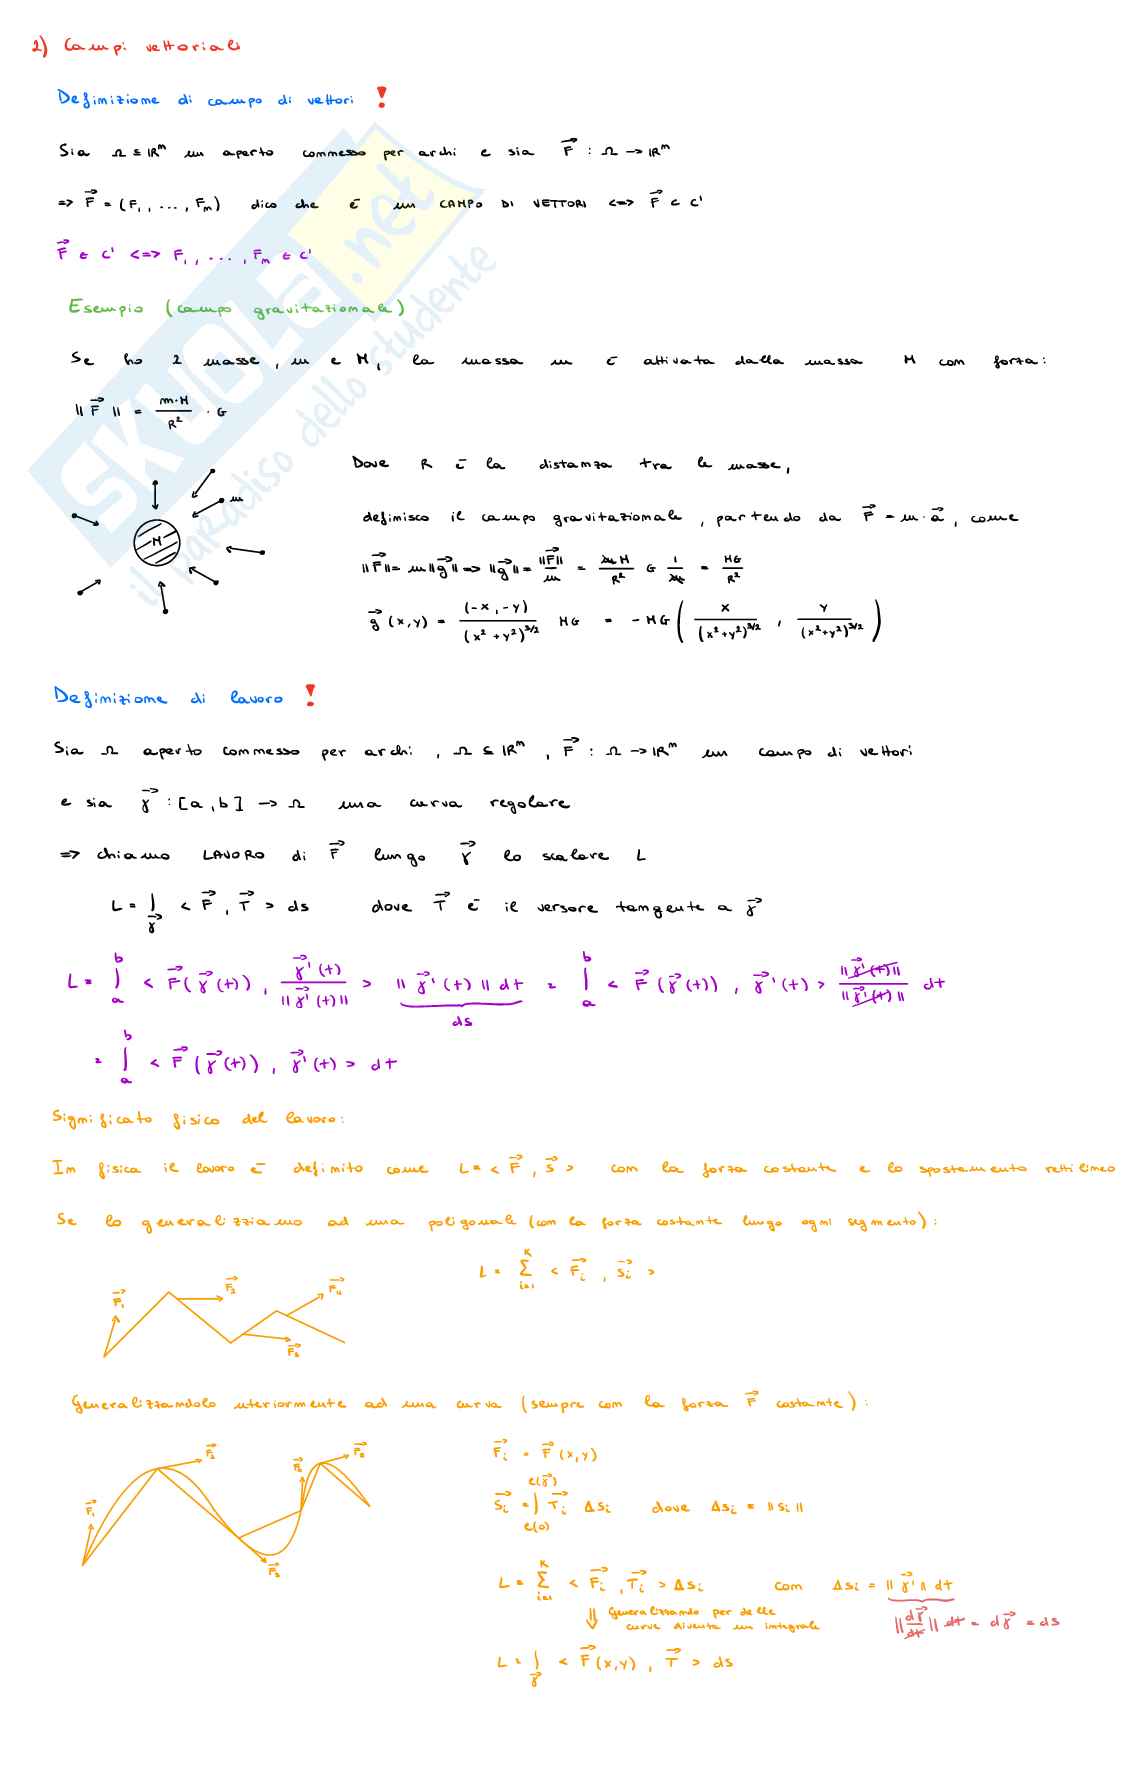 2) Campi vettoriali
Definizione di campo di vettori !
Sia Ω ⊆ ℝⁿ un aperto connesso per archi e sia F⃗ : Ω → ℝⁿ
=> F⃗ = (F₁, ..., Fₙ) dico che è un CAMPO DI VETTORI <=> F⃗ ∈ C¹
F⃗ ∈ C¹ <=> F₁, ..., Fₙ ∈ C¹
Esempio (campo gravitazionale)
Se ho 2 masse, m e M, la massa m è attivata dalla massa M con forza:
||F⃗|| = m·M/R² · G
Dove R è la distanza tra le masse,
m
M
definisco il campo gravitazionale, partendo da F⃗ = m·a⃗, come
||F⃗|| = m||g⃗|| => ||g⃗|| = ||F⃗||/m = mM/R² G 1/m = MG/R²
g⃗(x,y) = (-x,-y)/(x²+y²)^3/2 MG = -MG(x/(x²+y²)^3/2, y/(x²+y²)^3/2)
Definizione di lavoro !
Sia Ω aperto connesso per archi, Ω ⊆ ℝⁿ, F⃗ : Ω → ℝⁿ un campo di vettori
e sia γ⃗ : [a,b] → Ω una curva regolare
=> chiamo LAVORO di F⃗ lungo γ⃗ lo scalare L
L = ∫_γ⃗ <F⃗, T⃗> ds dove T⃗ è il versore tangente a γ⃗
L = ∫_a^b <F⃗(γ⃗(t)), γ⃗'(t)/||γ⃗'(t)||> ||γ⃗'(t)|| dt = ∫_a^b <F⃗(γ⃗(t)), γ⃗'(t)> ||γ⃗'(t)||/||γ⃗'(t)|| dt
ds
= ∫_a^b <F⃗(γ⃗(t)), γ⃗'(t)> dt
Significato fisico del lavoro:
In fisica il lavoro è definito come L = <F⃗, s⃗> con la forza costante e lo spostamento rettilineo
Se lo generalizziamo ad una poligonale (con la forza costante lungo ogni segmento):
L = Σ_{i=1}^K <F⃗ᵢ, s⃗ᵢ>
F⃗₁ F⃗₂ F⃗₃ F⃗₄
Generalizzandolo uteriormente ad una curva (sempre con la forza F⃗ costante):
F⃗ᵢ = F⃗(x,y)
s⃗ᵢ = ∫_{ℓ(0)}^{ℓ(γ⃗)} T⃗ᵢ Δsᵢ dove Δsᵢ = ||sᵢ||
L = Σ_{i=1}^K <F⃗ᵢ, T⃗ᵢ> Δsᵢ con Δsᵢ = ||γ⃗'|| dt
⇓ Generalizzando per delle
curve diventa un integrale
||dγ⃗/dt|| dt = dγ⃗ = ds
L = ∫_γ⃗ <F⃗(x,y), T⃗> ds
SKUOLA.net
il paradiso dello studente